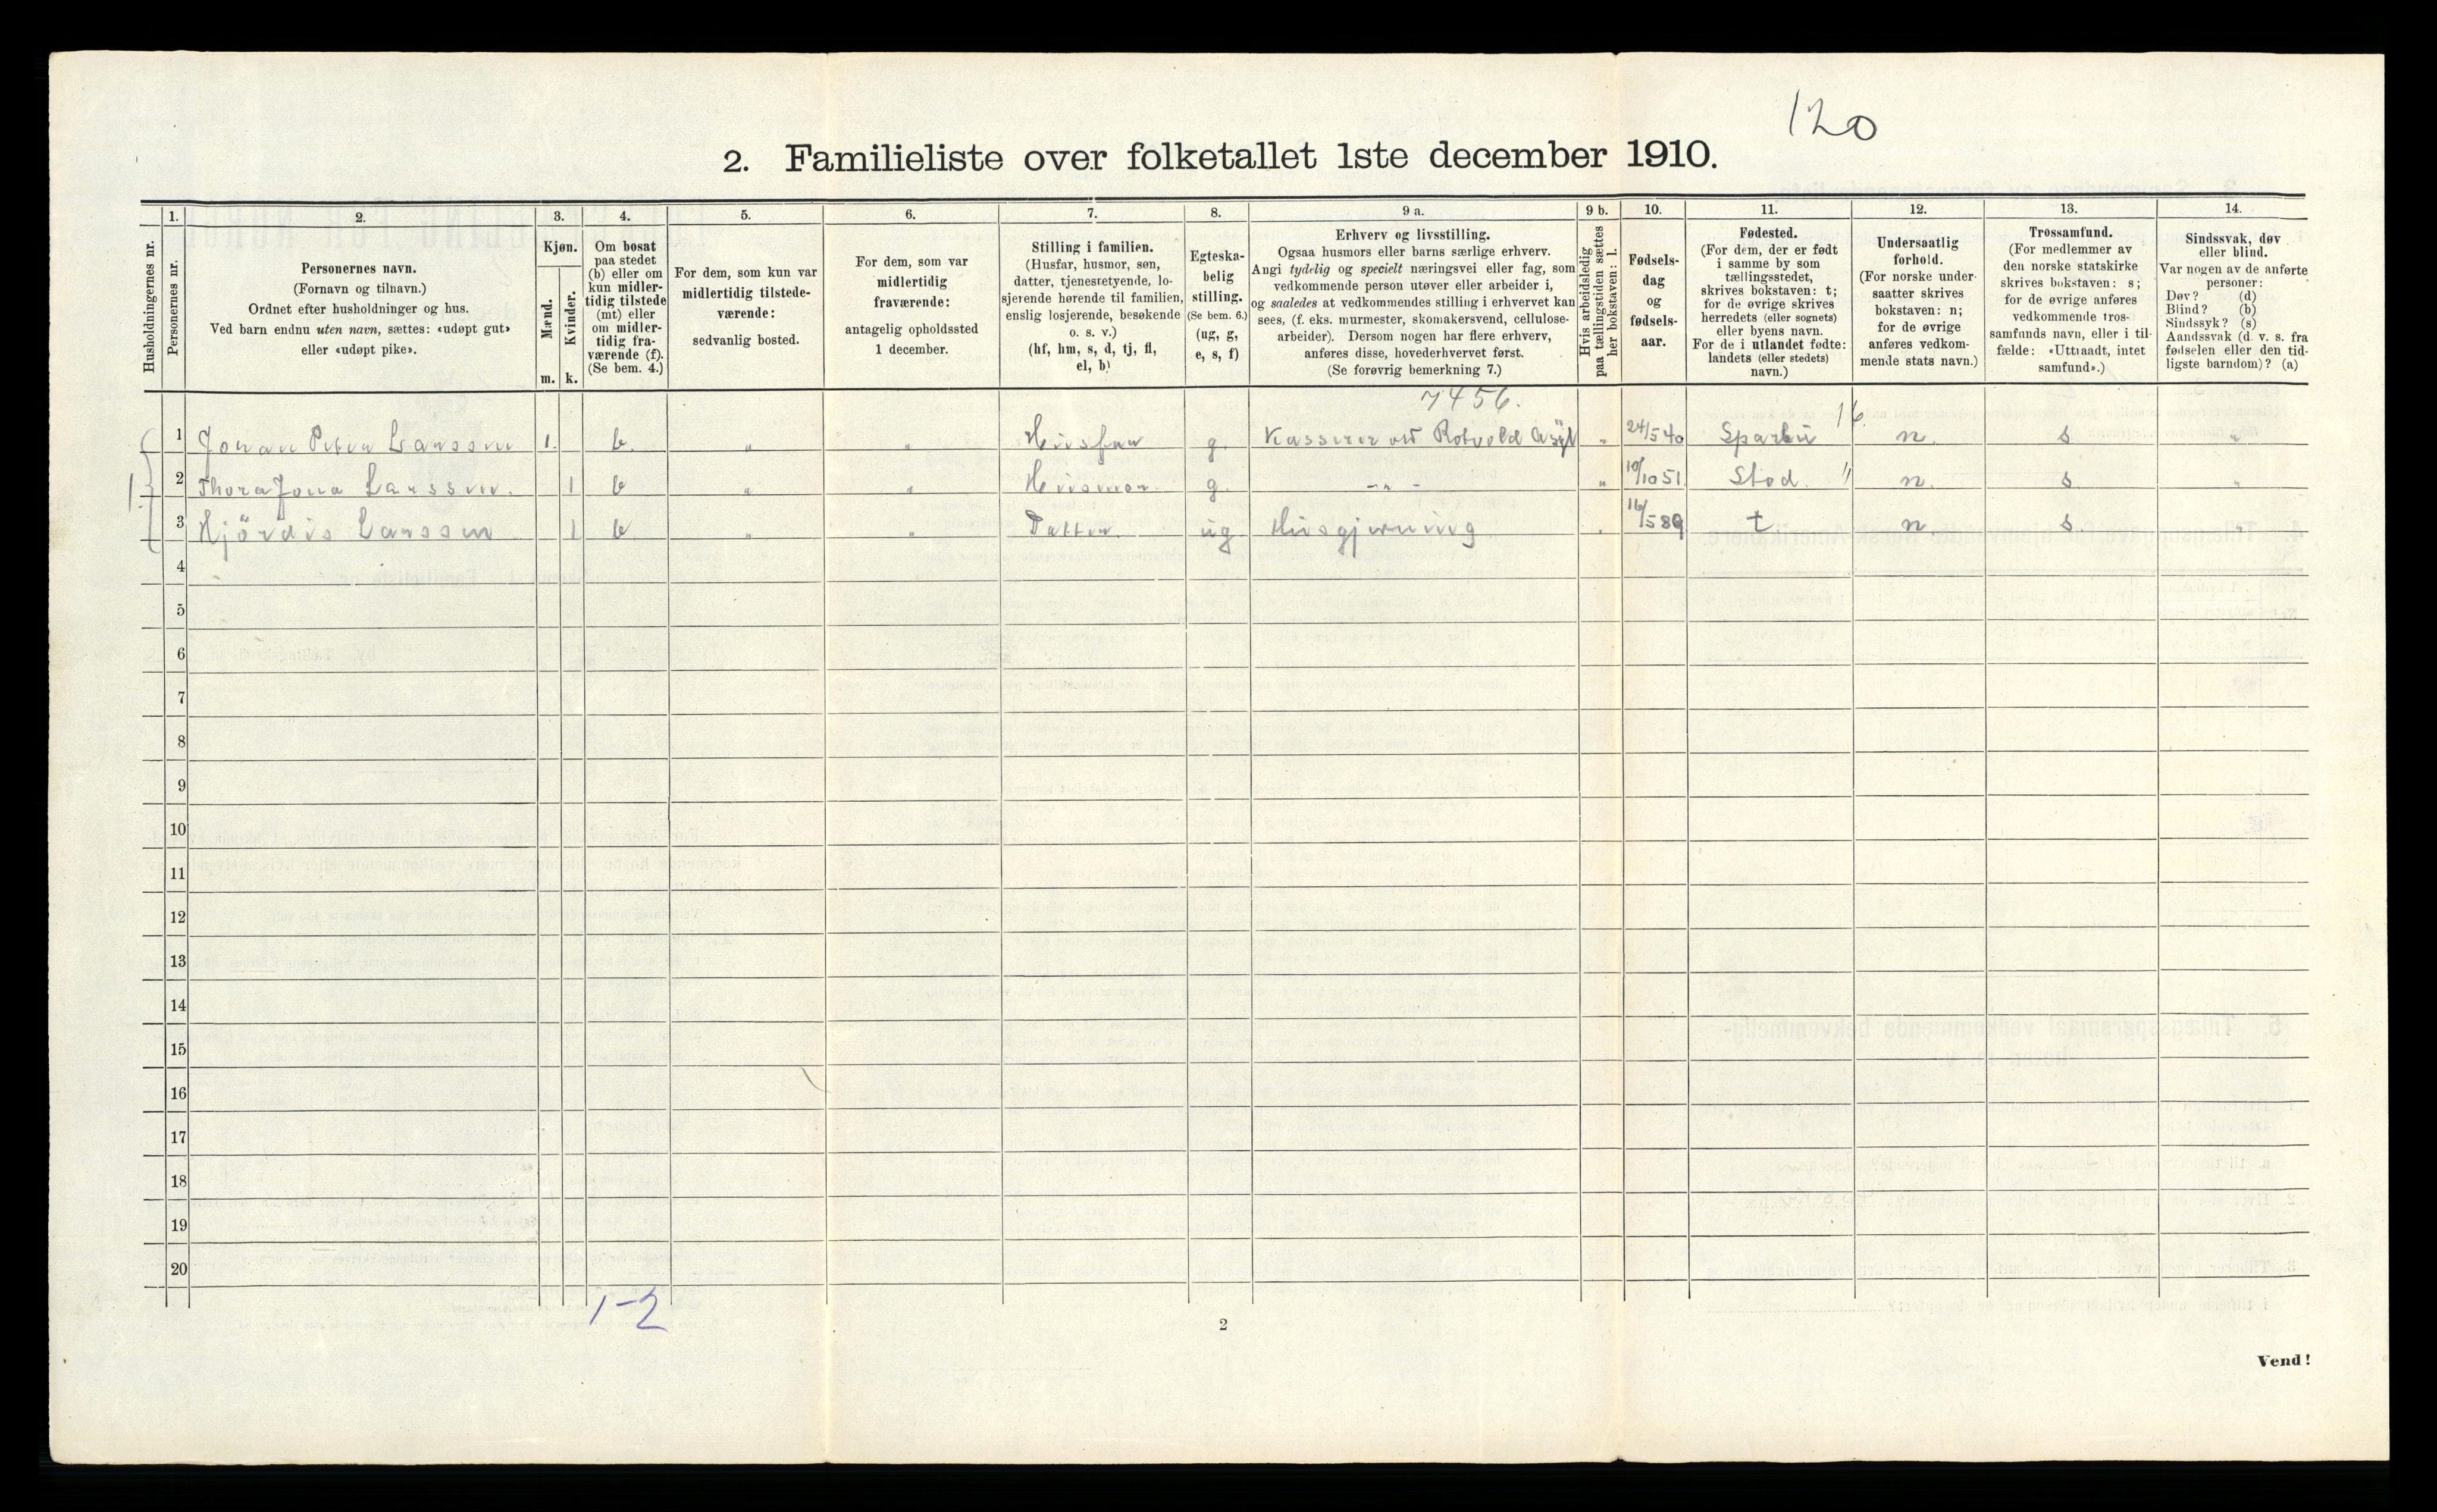 120
2. Familieliste over folketallet 1ste december 1910.
Husholdningernes nr.
1. Personernes nr.
2. Personernes navn.
(Fornavn og tilnavn.)
Ordnet efter husholdninger og hus.
Ved barn endnu uten navn, sættes: «udøpt gut»
eller «udøpt pike».
3. Kjøn.
Mænd. m.
Kvinder. k.
4. Om bosat
paa stedet
(b) eller om
kun midler-
tidig tilstede
(mt) eller
om midler-
tidig fra-
værende (f).
(Se bem. 4.)
5. For dem, som kun var
midlertidig tilstede-
værende:
sedvanlig bosted.
6. For dem, som var
midlertidig
fraværende:
antagelig opholdssted
1 december.
7. Stilling i familien.
(Husfar, husmor, søn,
datter, tjenestetyende, lo-
sjerende hørende til familien,
enslig losjerende, besøkende
o. s. v.)
(hf, hm, s, d, tj, fl,
el, b)
8. Egteska-
belig
stilling.
(Se bem. 6.)
(ug, g,
e, s, f)
9 a. Erhverv og livsstilling.
Ogsaa husmors eller barns særlige erhverv.
Angi tydelig og specielt næringsvei eller fag, som
vedkommende person utøver eller arbeider i,
og saaledes at vedkommendes stilling i erhvervet kan
sees, (f. eks. murmester, skomakersvend, cellulose-
arbeider). Dersom nogen har flere erhverv,
anføres disse, hovederhvervet først.
(Se forøvrig bemerkning 7.)
9 b. Hvis arbeidsledig
paa tællingstiden sættes
her bokstaven: l.
10. Fødsels-
dag
og
fødsels-
aar.
11. Fødested.
(For dem, der er født
i samme by som
tællingsstedet,
skrives bokstaven: t;
for de øvrige skrives
herredets (eller sognets)
eller byens navn.
For de i utlandet fødte:
landets (eller stedets)
navn.)
12. Undersaatlig
forhold.
(For norske under-
saatter skrives
bokstaven: n;
for de øvrige
anføres vedkom-
mende stats navn.)
13. Trossamfund.
(For medlemmer av
den norske statskirke
skrives bokstaven: s;
for de øvrige anføres
vedkommende tros-
samfunds navn, eller i til-
fælde: «Uttraadt, intet
samfund».)
14. Sindssvak, døv
eller blind.
Var nogen av de anførte
personer:
Døv? (d)
Blind? (b)
Sindssyk? (s)
Aandssvak (d. v. s. fra
fødselen eller den tid-
ligste barndom)? (a)
7456.
16
1 Johan Peter Larssen 1. b. „ „ Husfar g. Kasserer ved Rotvold Asyl „ 24/5 40 Sparbu n. s „
1. 2 Thora Jona Larssen. 1 b „ „ Husmor g. -„- „ 10/10 51. Stod. " n. s. „
3 Hjördis Larssen 1 b. „ „ Datter. ug. Husgjerning „ 16/5 89 t n s. „
4
5
6
7
8
9
10
11
12
13
14
15
16
17
18
19
20
1-2
2
Vend!